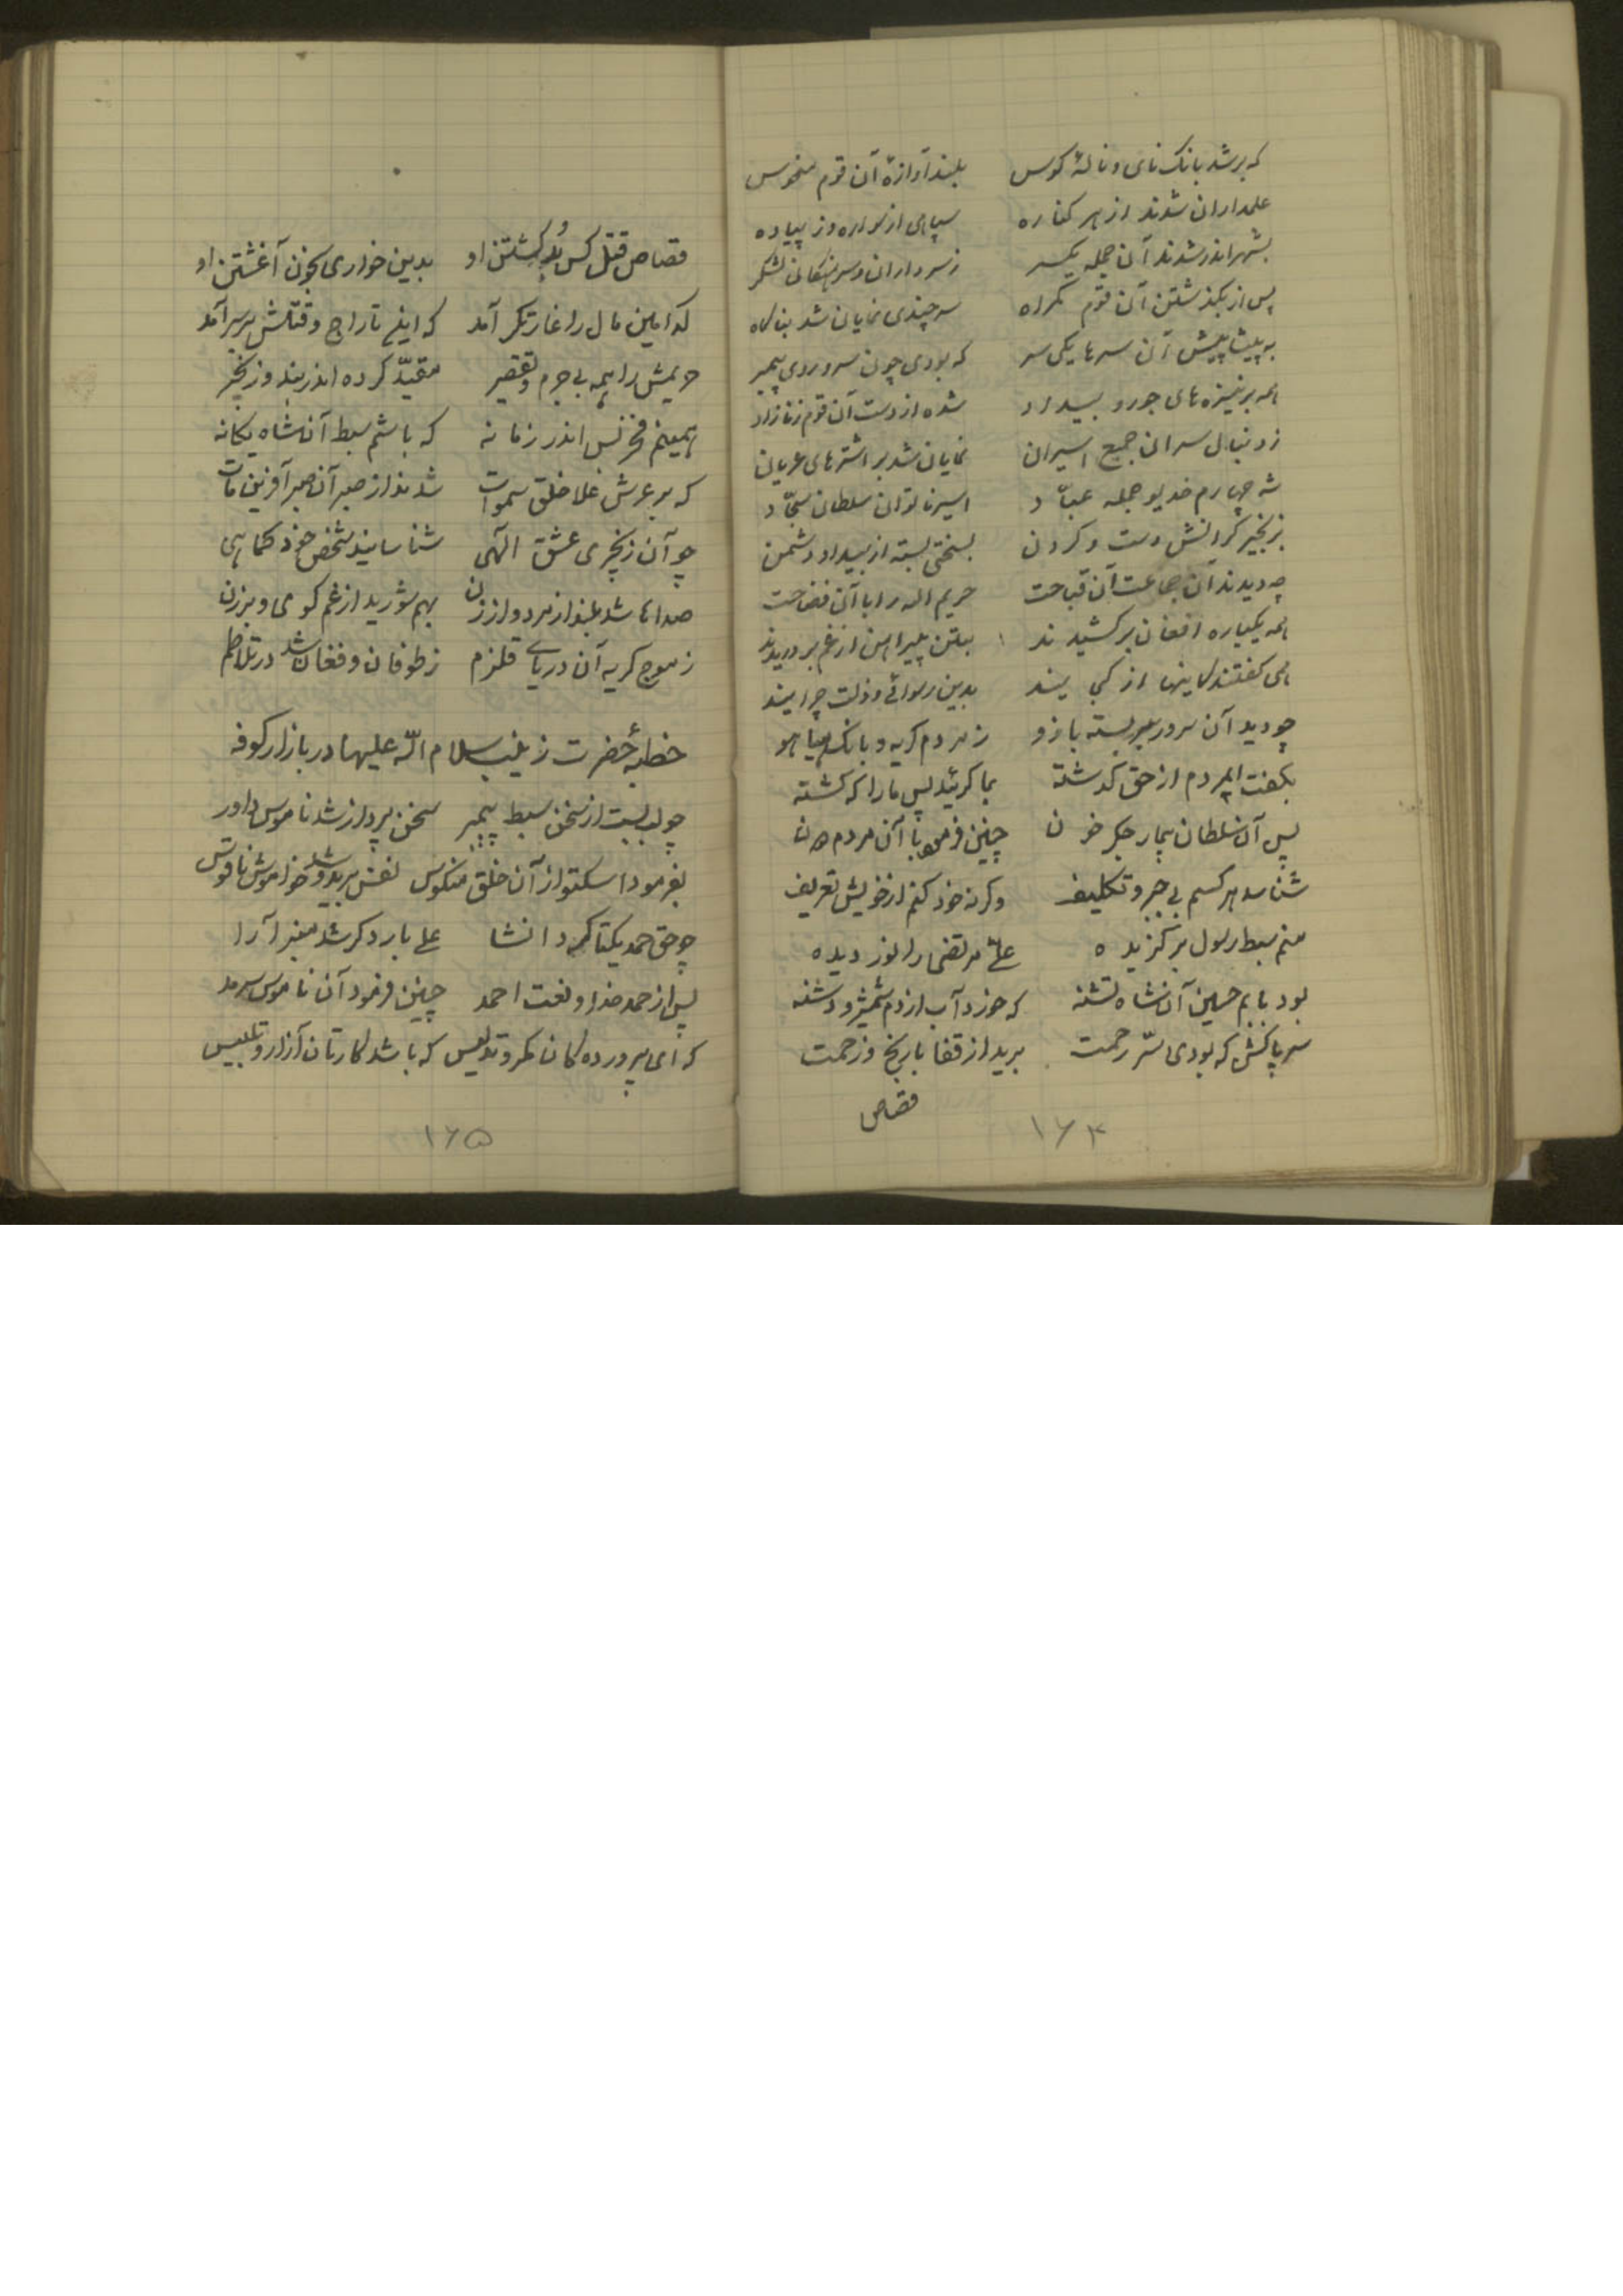 که بر شد بانک نای و نالهٔ کوس بلند آوازهٔ آن قوم منحوس
علمداران شدند از هر کناره سپاهی از سواره وز پیاده
بشهر اندر شدند آن جمله یکسر ز سرداران و سرهنکان لشکر
پس از بکذشتن آن قوم کمراه سر چندی نمایان شد بناکاه
به پیشاپیش آن سرها یکی سر که بودی چون سر و روی پیمبر
همه بر نیزه های جور و بیداد شده از دست آن قوم زنازاد
ز دنبال سران جمع اسیران نمایان شد بر اشترهای عریان
شه چهارم خدیو جمله عبّاد اسیر ناتوان سلطان سجّاد
بزنجیر کرانش دست و کردن بسختی بسته از بیداد دشمن
چه دیدند آن جماعت آن قباحت حریم اله را با آن فضاحت
همه یکباره افغان بر کشیدند بتن پیراهن از غم بر دریدند
همی کفتند کاینها از کی یند بدین رسوائی و ذلت چرایند
چو دید آن سرور بر بسته بازو ز مردم کریه و بانک هیاهو
بکفت ایمردم از حق کذشته بما کریید پس ما را که کشته
پس آن سلطان بیمار جکر خون چنین فرمود با آن مردم دون
شناسد هر کسم بی جبر و تکلیف وکرنه خود کنم از خویش تعریف
منم سبط رسول برکزیده علی مرتضی را نور دیده
بود بابم حسین آن شاه تشنه که خورد آب از دم شمشیر و دشنه
سر پاکش که بودی سرّ رحمت برید از قفا با رنج و زحمت
قصاص
۱۶۴
قصاص قتل کس بُد کشتن او بدین خواری بخون آغشتن او
کدامین مال را غارتکر آمد که اینم تاراج و قتلش بر سر آمد
حریمش را همه بی جرم و تقصیر مقیّد کرده اندر بند و زنجیر
همینم فخر بس اندر زمانه که باشم سبط آن شاه یکانه
که بر عرش علا خلق سموات شدند از صبر آن صبر آفرین مات
چو آن زنجیری عشق الهی شناسانید شخص خود کماهی
صداها شد بلند از مرد و از زن بهم شورید از غم کوی و برزن
ز موج کریه آن دریای قلزم ز طوفان و فغان شد در تلاطم
خطبهٔ حضرت زینب سلام الله علیها در بازار کوفه
چو لب بست از سخن سبط پیمبر سخن پرداز شد ناموس داور
بفرمود اسکتوا از آن خلق منکوس نفس ببرید و شد خواموش ناقوس
چو حق حمد یکتا کرد انشا علی بار دکر شد منبر آرا
پس از حمد خدا و نعت احمد چنین فرمود آن ناموس سرمد
که ای پرورده کان مکر و تدلیس که باشد کارتان آزار و تلبیس
۱۶۵